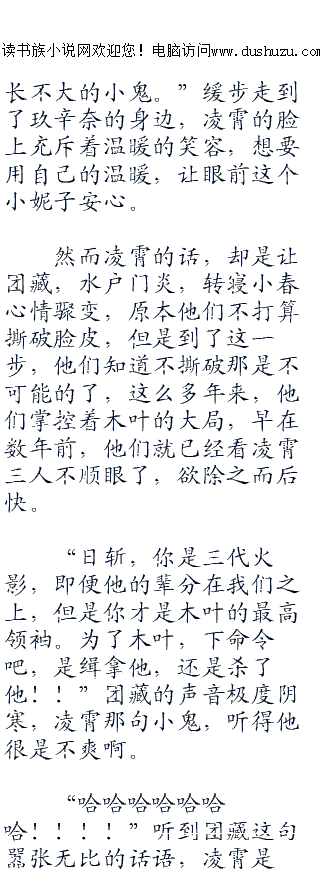 读书族小说网欢迎您！电脑访问www.dushuzu.com
长不大的小鬼。”缓步走到
了玖辛奈的身边，凌霄的脸
上充斥着温暖的笑容，想要
用自己的温暖，让眼前这个
小妮子安心。
然而凌霄的话，却是让
团藏，水户门炎，转寝小春
心情骤变，原本他们不打算
撕破脸皮，但是到了这一
步，他们知道不撕破那是不
可能的了，这么多年来，他
们掌控着木叶的大局，早在
数年前，他们就已经看凌霄
三人不顺眼了，欲除之而后
快。
“日斩，你是三代火
影，即便他的辈分在我们之
上，但是你才是木叶的最高
领袖。为了木叶，下命令
吧，是缉拿他，还是杀了
他！！”团藏的声音极度阴
寒，凌霄那句小鬼，听得他
很是不爽啊。
“哈哈哈哈哈哈
哈！！！！”听到团藏这句
嚣张无比的话语，凌霄是